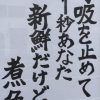 吸を止めて
1秒あなた
新鮮だけど
煮魚